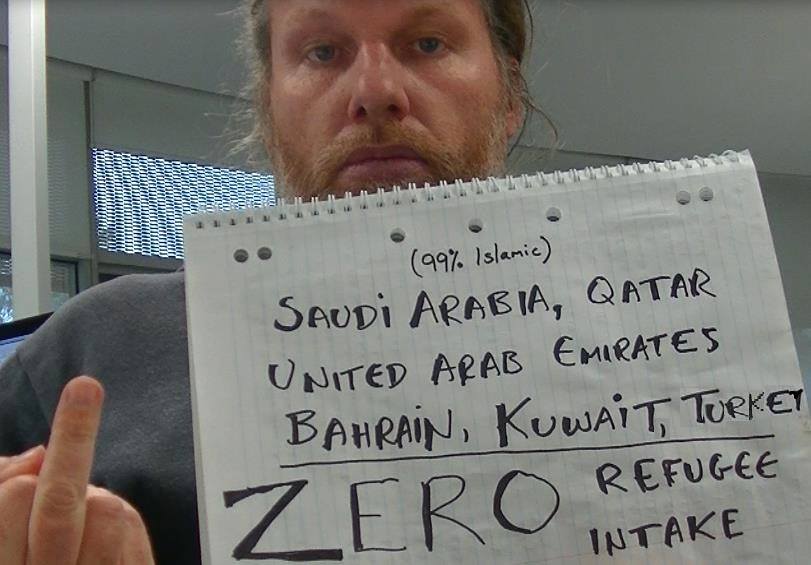 (99% Islamic)
SAUDi ARABIA, QATAR
UNITED ARAB EMIRATES
BAHRAiN, KUWAiT, TURKEY
ZERO REFUGEE
INTAKE